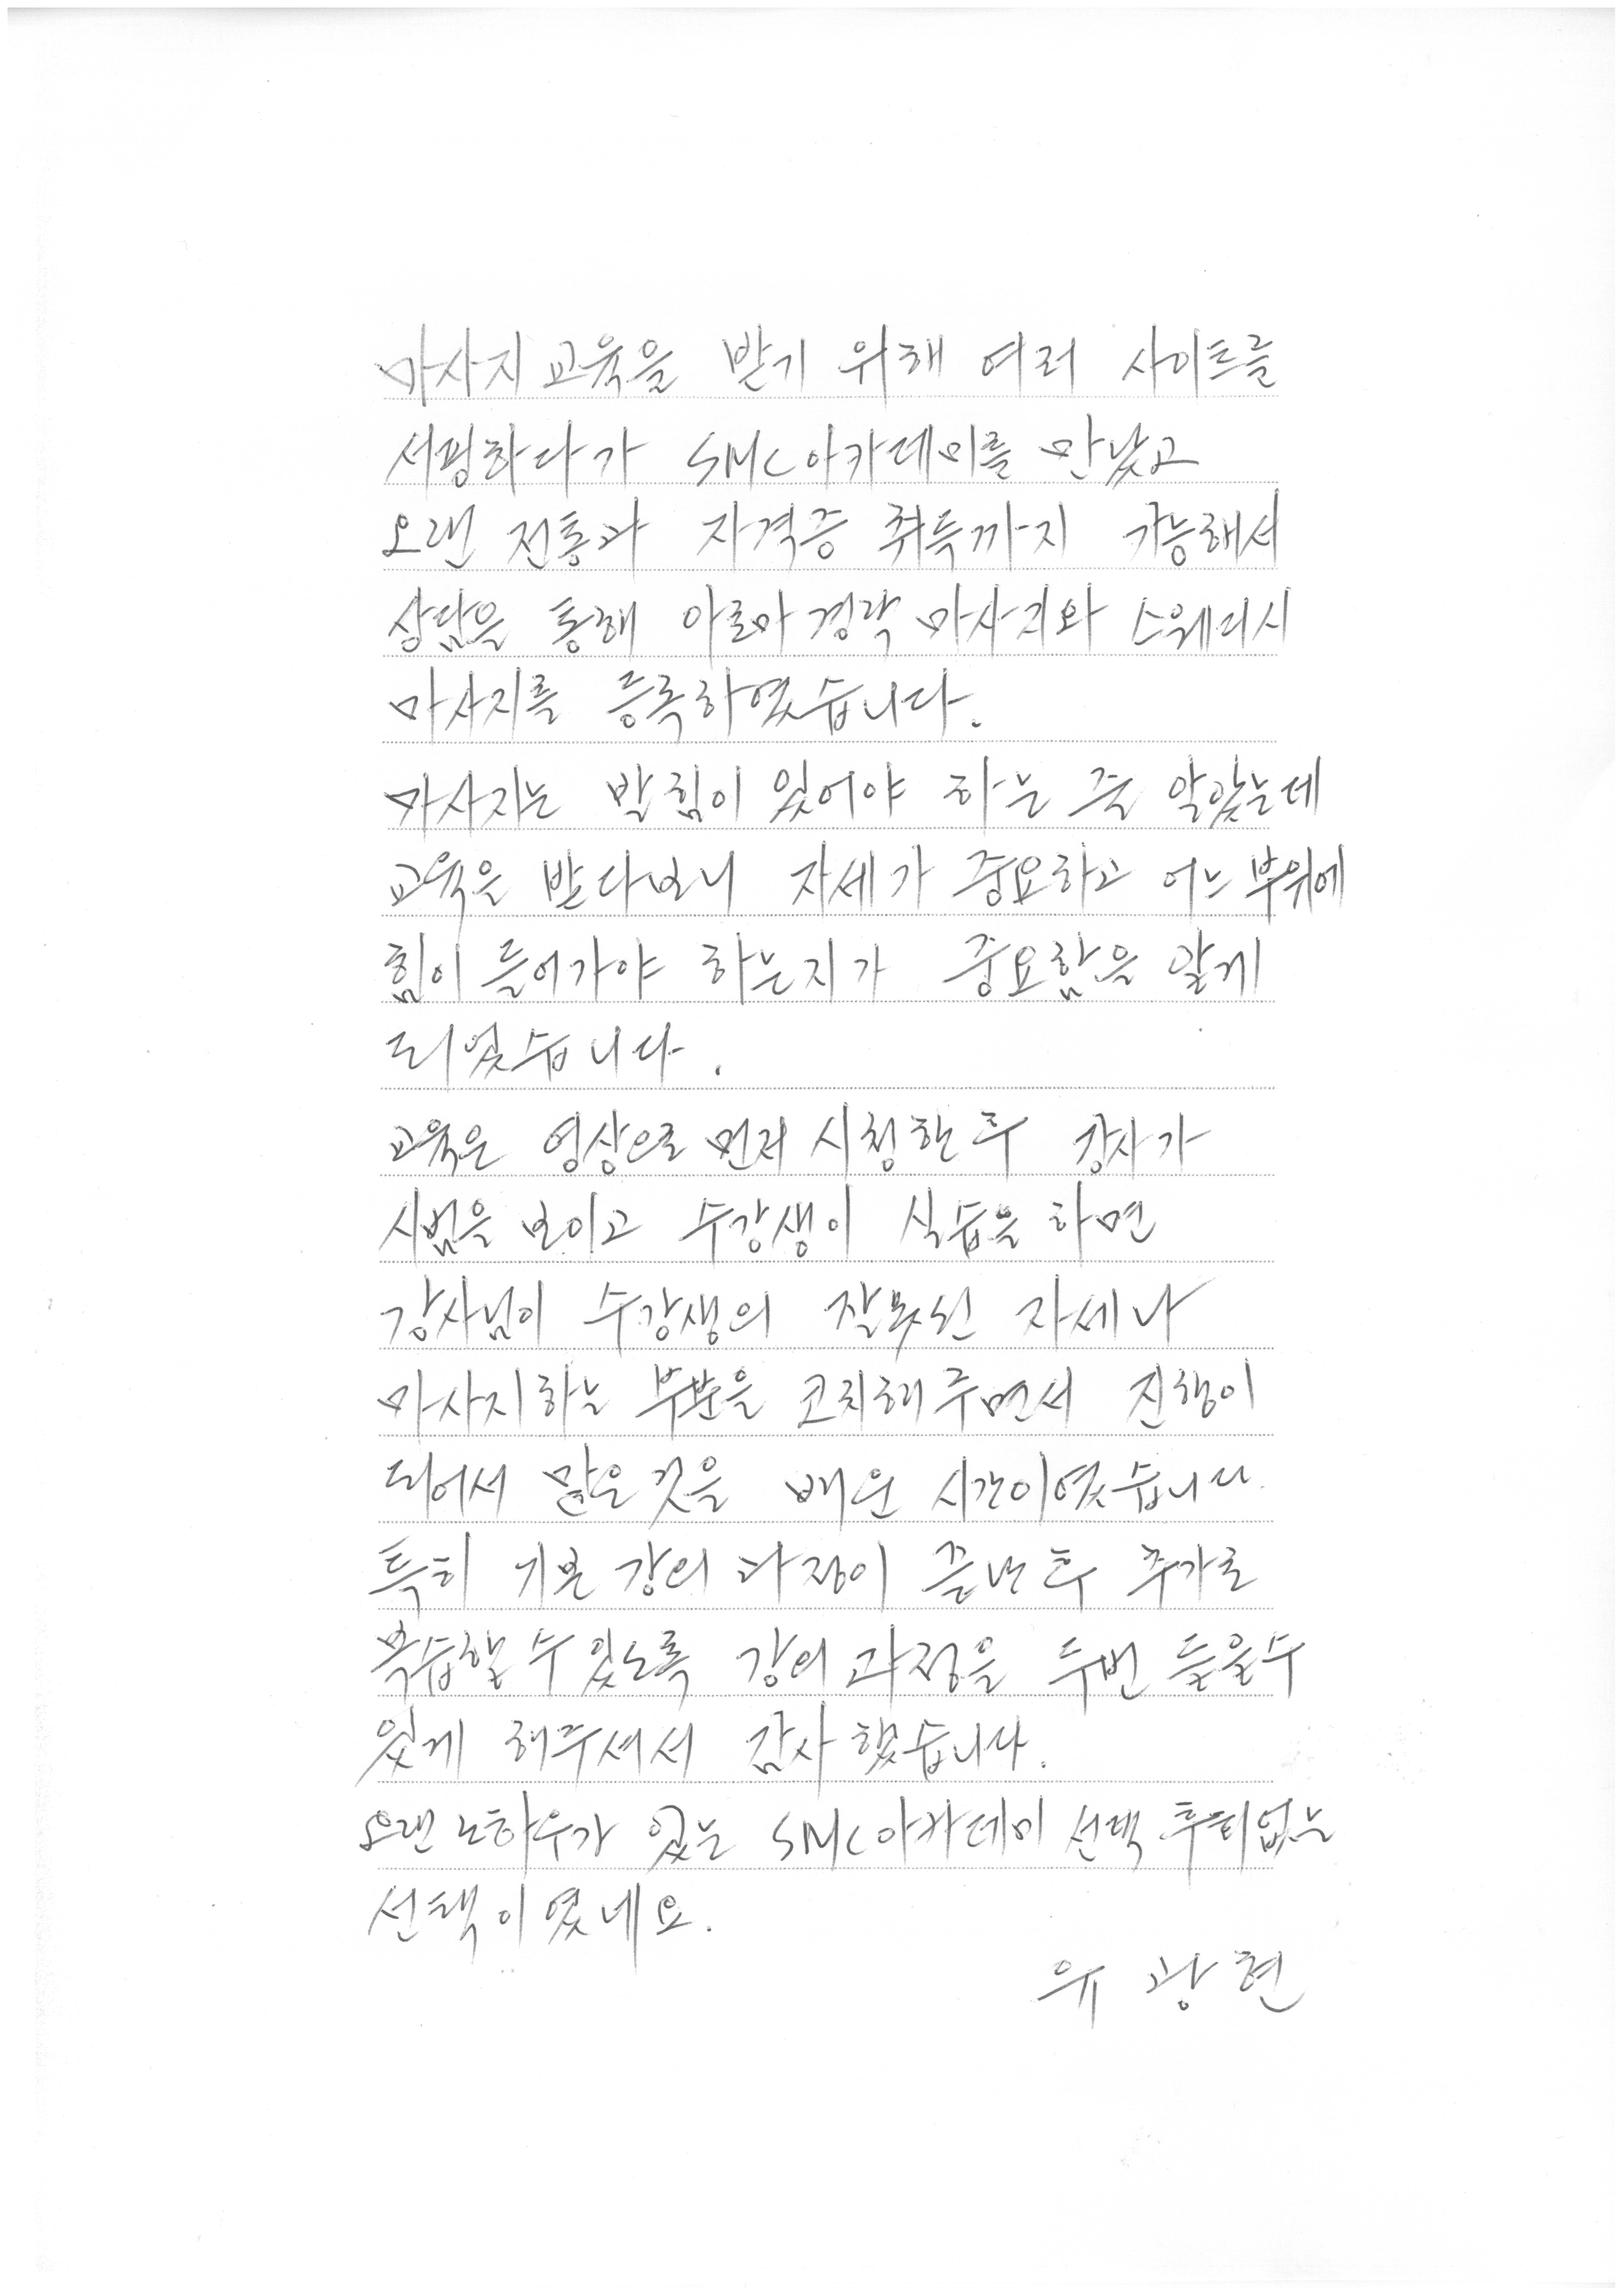 마사지 교육을 받기 위해 여러 사이트를
서핑하다가 SMC아카데미를 만났고
오랜 전통과 자격증 취득까지 가능해서
상담을 통해 아로마 경락 마사지와 스웨디시
마사지를 등록하였습니다.
마사지는 발힘이 있어야 하는 줄 알았는데
교육을 받다보니 자세가 중요하고 어느 부위에
힘이 들어가야 하는지가 중요함을 알게
되었습니다.
교육은 영상으로 먼저 시청한 후 강사가
시범을 보이고 수강생이 실습을 하면
강사님이 수강생의 잘못된 자세나
마사지하는 부분을 코치해주면서 진행이
되어서 많은 것을 배운 시간이였습니다.
특히 기본 강의 과정이 끝난 후 추가로
복습할 수 있도록 강의 과정을 두번 들을수
있게 해주셔서 감사했습니다.
오랜 노하우가 있는 SMC아카데미 선택 후회없는
선택이였네요.
유 광 현